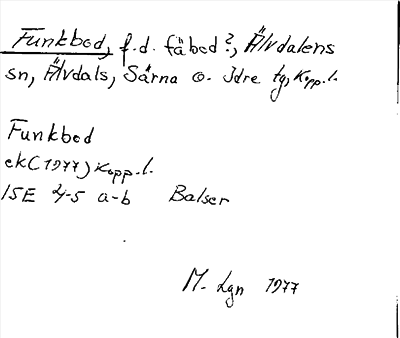 Funkbod, f.d. fäbod?, Älvdalens
sn, Älvdals, Särna o. Idre tg, Kopp.l.
Funkbod
ek (1977) Kopp.l.
15E 4-5 a-b Balser
M. Lgn 1977